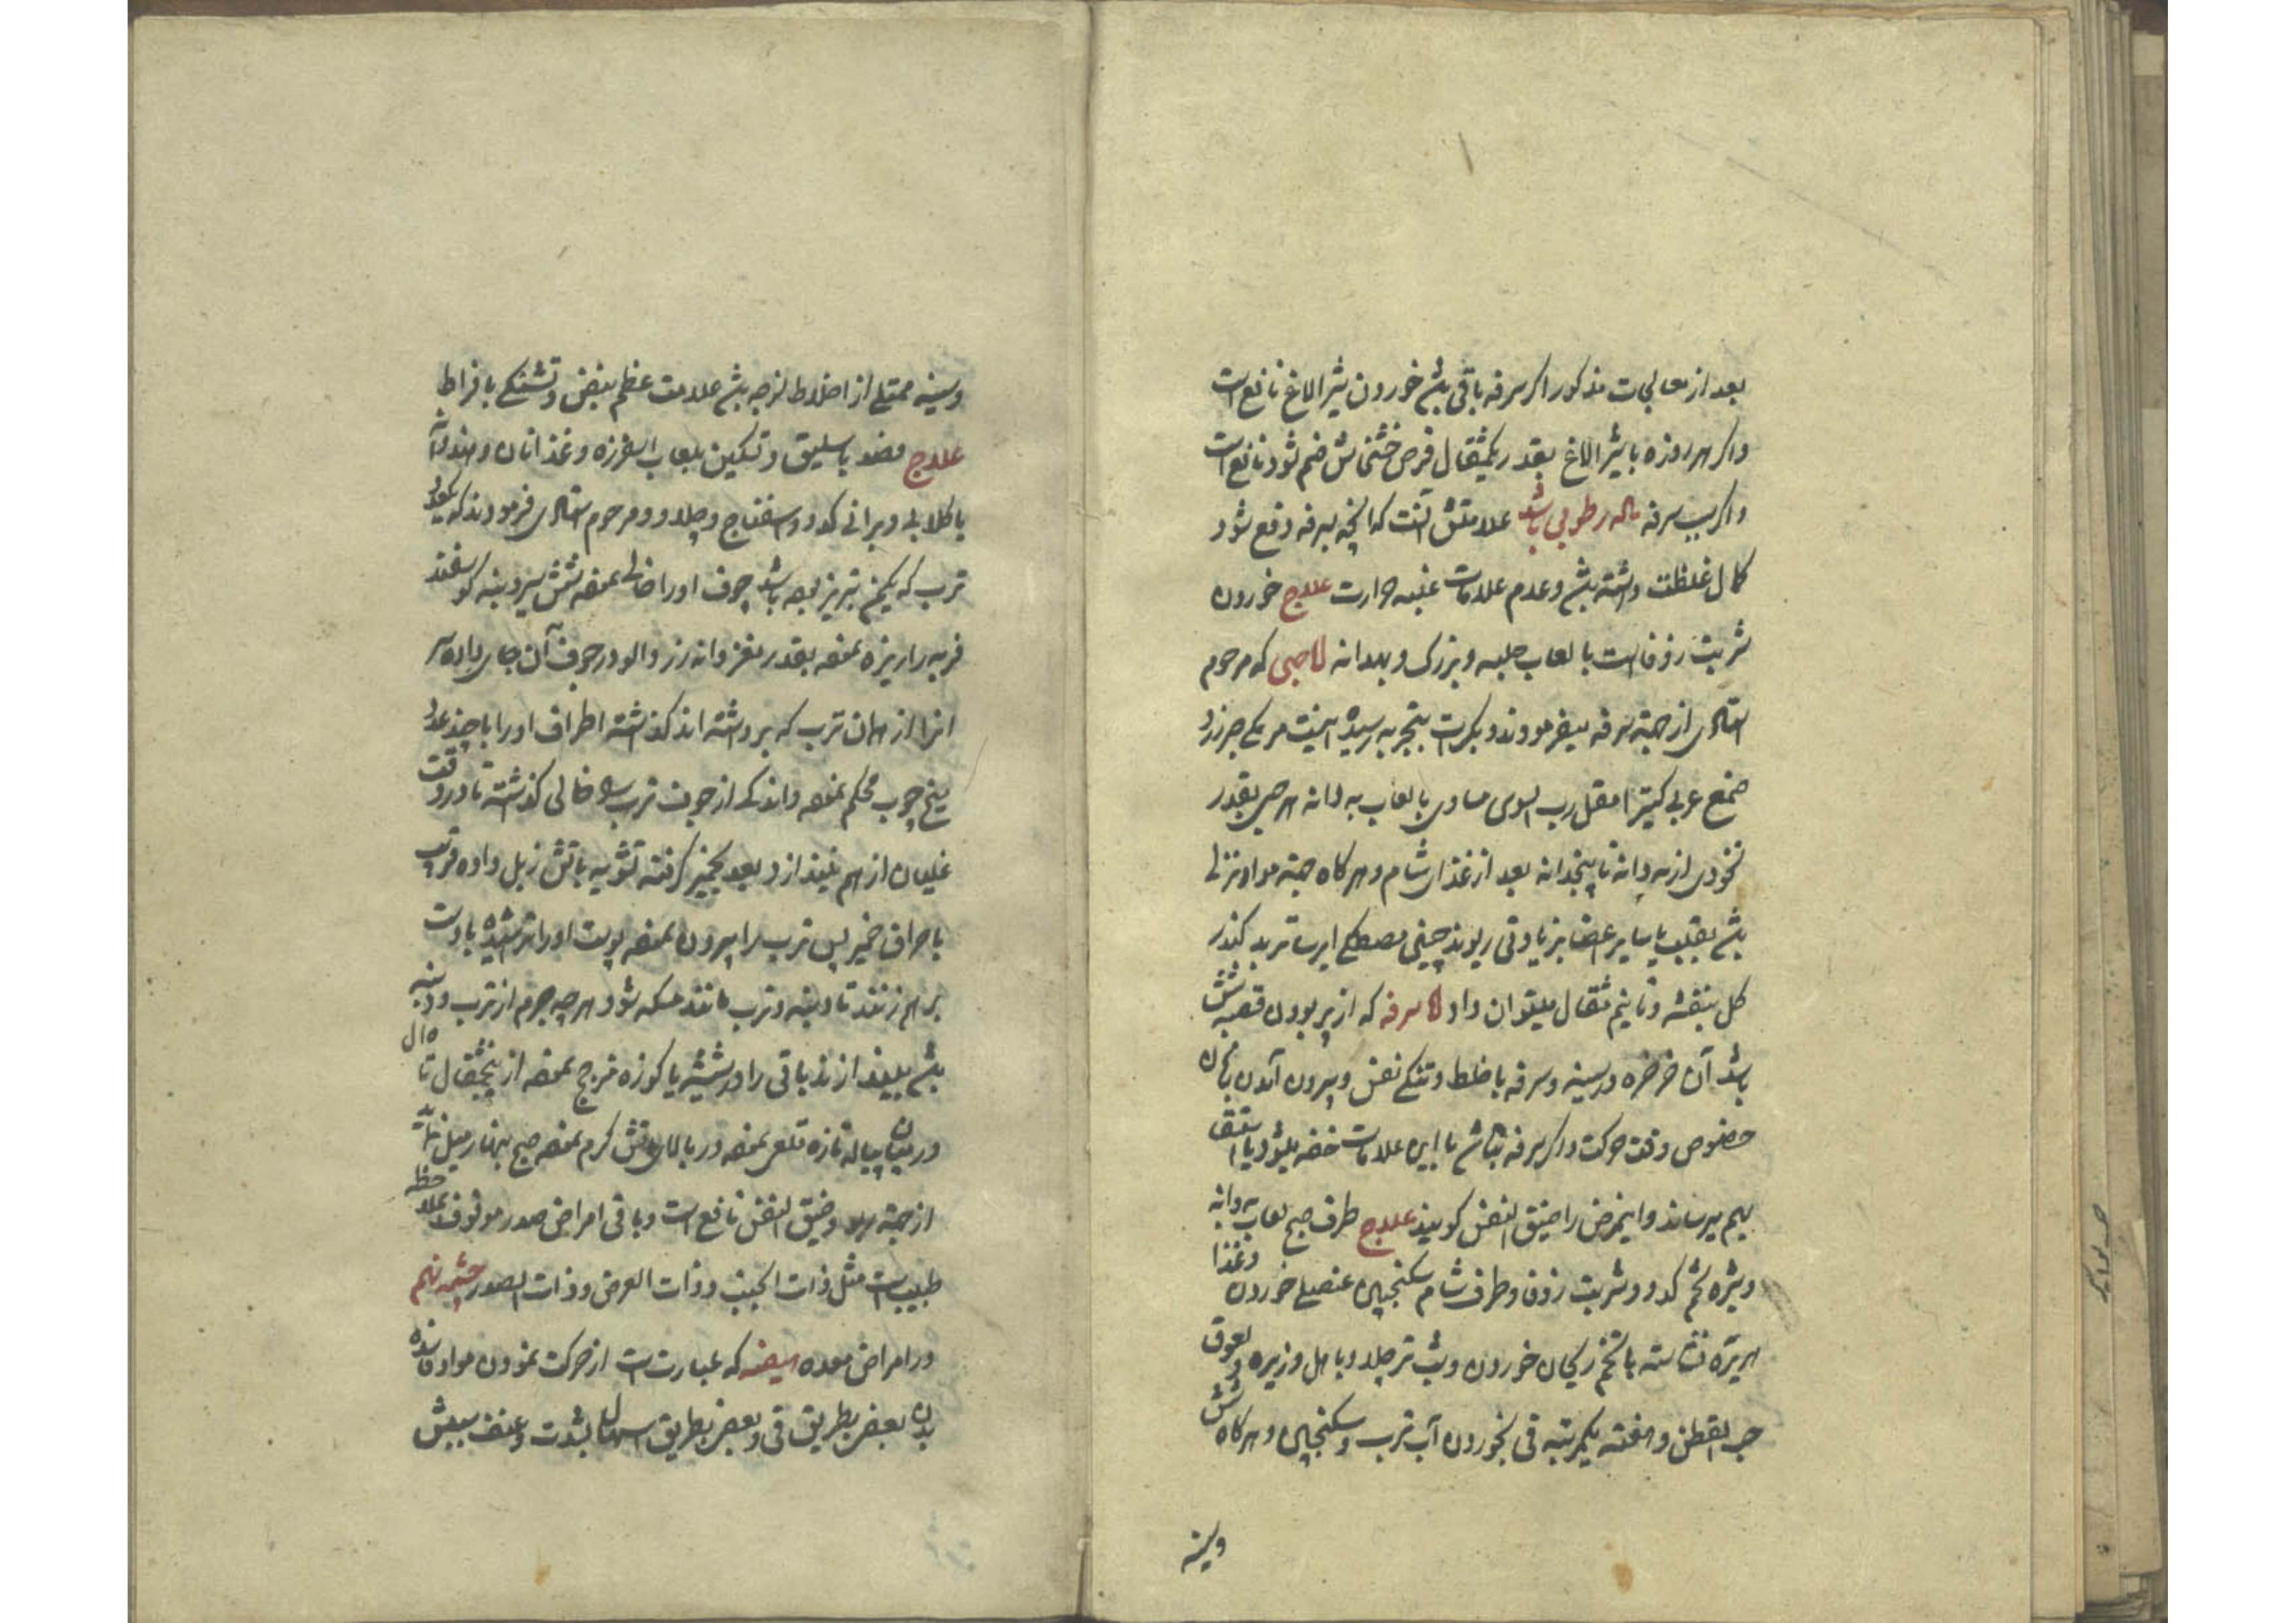 بعد از معالجات مذکور اکر سرفه باقی باشد خوردن شیر الاغ نافع است
و اکر هر روزه با شیر الاغ بقدر یکمثقال قرص خشخاش ضم شود نافع است
و اکر سبب سرفه ماده رطوبی باشد علامتش آنست که آنچه بسرفه دفع شود
کمال غلظت داشته باشد و عدم علامات غلبه حرارت علاج خوردن
شربت زوفاست با لعاب حلبه و بزرک و بهدانه اما حبی که مرحوم
استادی از جهة سرفه میفرمودند و بکرات بتجربه رسیده اینست مر مکی جزرد
صمغ عربی کتیرا مقل رب السوس مساوی بالعاب به دانه هر حبی بقدر
نخودی از سه دانه تا پنجدانه بعد از غذای شام و هر کاه جهة مواد نزلی
باشد بقلیب یا سایر اعضا بزیادتی ریوند چینی مصطکی ایرسا تربد کندر
کل بنفشه و تا نیم مثقال میتوان داد اما سرفه که از پر بودن قصبه شش
باشد آن خرخره در سینه و سرفه با خلط و تنکی نفس و بیرون آمدن زبان
خصوص وقت حرکت و اکر سرفه نباشد با این علامات خفه میشود یا استسقا
بهم میرساند و اینمرض را ضیق النفس کویند علاج طرف صبح لعاب به دانه
و شیره تخم کدو و شربت زوفا و طرف شام سکنجبین عنصلی خوردن و غذا
هریره نشاسته با تخم ریحان خوردن و شب تر چلاو با هل و زیره و لعوق
حب القطن و هفته یکمرتبه قی بخوردن آب ترب و سکنجبین و هر کاه شش
وسینه
وسینه ممتلی از اخلاط لزجه باشد علامت عظم نبض و تشنکی بافراط
علاج فصد باسلیق و تسکین بلعاب اسفرزه و غذا نان و هندوانه
یا کلابی و بورانی کدو و اسفناج و چلاو و مرحوم استادی فرمودند که یکعدد
ترب که یکمن تبریز بوده باشد جوف او را خالی نموده شش سیر دنبه کوسفند
فربه را ریزه نموده بقدر مغز دانه زردالو در جوف آن جای داده سر
انرا از همان ترب که برداشته اند کذاشته اطراف او را با چند عدد
میخ چوب محکم نموده و اندکی از جوف ترب را خالی کذاشته تا در وقت
غلیان از هم نیندازد و بعد بخمیر کرفته تشویه باتش زبل داده قریب
باحراق خمیر پس ترب را بیرون نموده پوست او را تراشیده با دست
بر هم زنند تا دنبه و ترب مانند مسکه شود هر چه جرم از ترب و دنبه
باشد بیندازند باقی را در شیشه یا کوزه مزجج نموده از پنجمثقال تا ده مثقال
در میان پیاله تازه قلعی نموده در بالای آتش کرم نموده صبح بنهار میل نمایند
از جهة ربو و ضیق النفس نافع است و باقی امراض صدر موقوف بملاحظه
طبیب است مثل ذات الجنب و ذات العرض و ذات الصدر چشمه نهم
در امراض معده هیضه که عبارت است از حرکت نمودن مواد فاسده
بدن بعضی بطریق قی و بعضی بطریق اسهال بشدت و عنف سببش